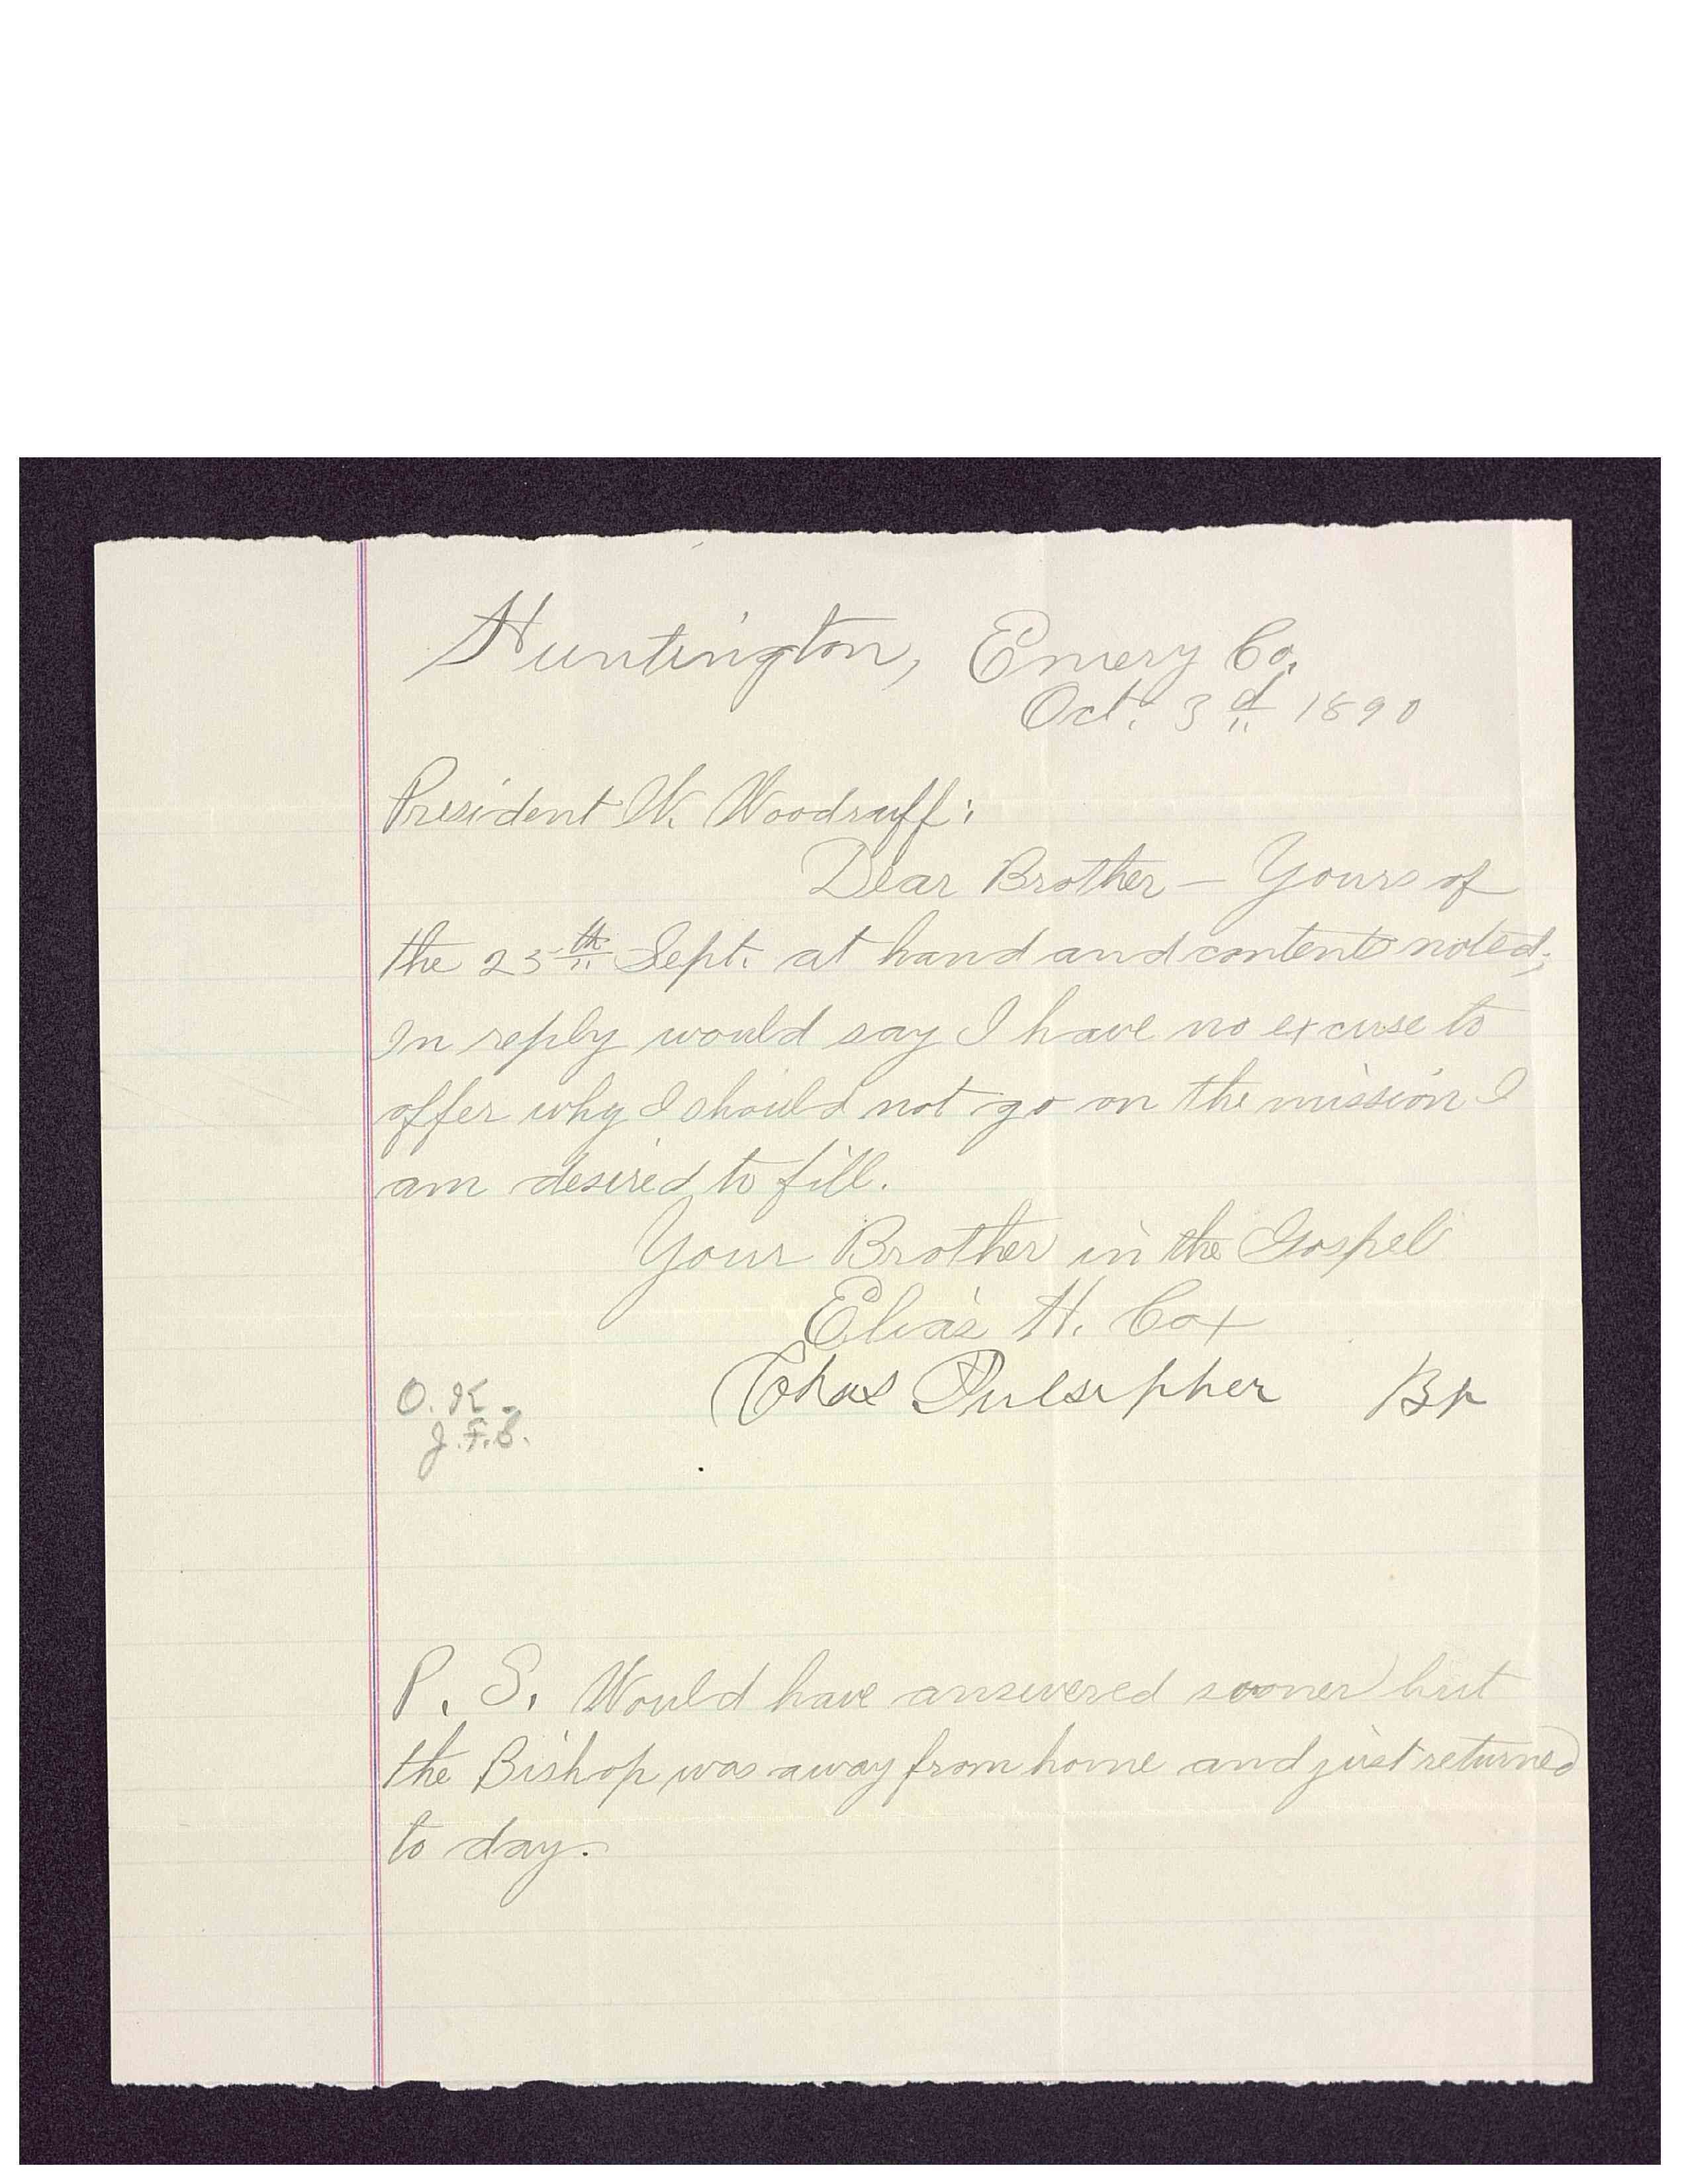 Huntington, Emery Co.
Oct. 3d 1890
President W. Woodruff:
Dear Brother — Yours of
the 25th Sept. at hand and contents noted;
In reply would say I have no excuse to
offer why I should not go on the mission I
am desired to fill.
Your Brother in the Gospel
Elias H. Cox
Chas Pulsipher Bp
O. K.
J. F. S.
P. S. Would have answered sooner but
the Bishop was away from home and just returned
to day.